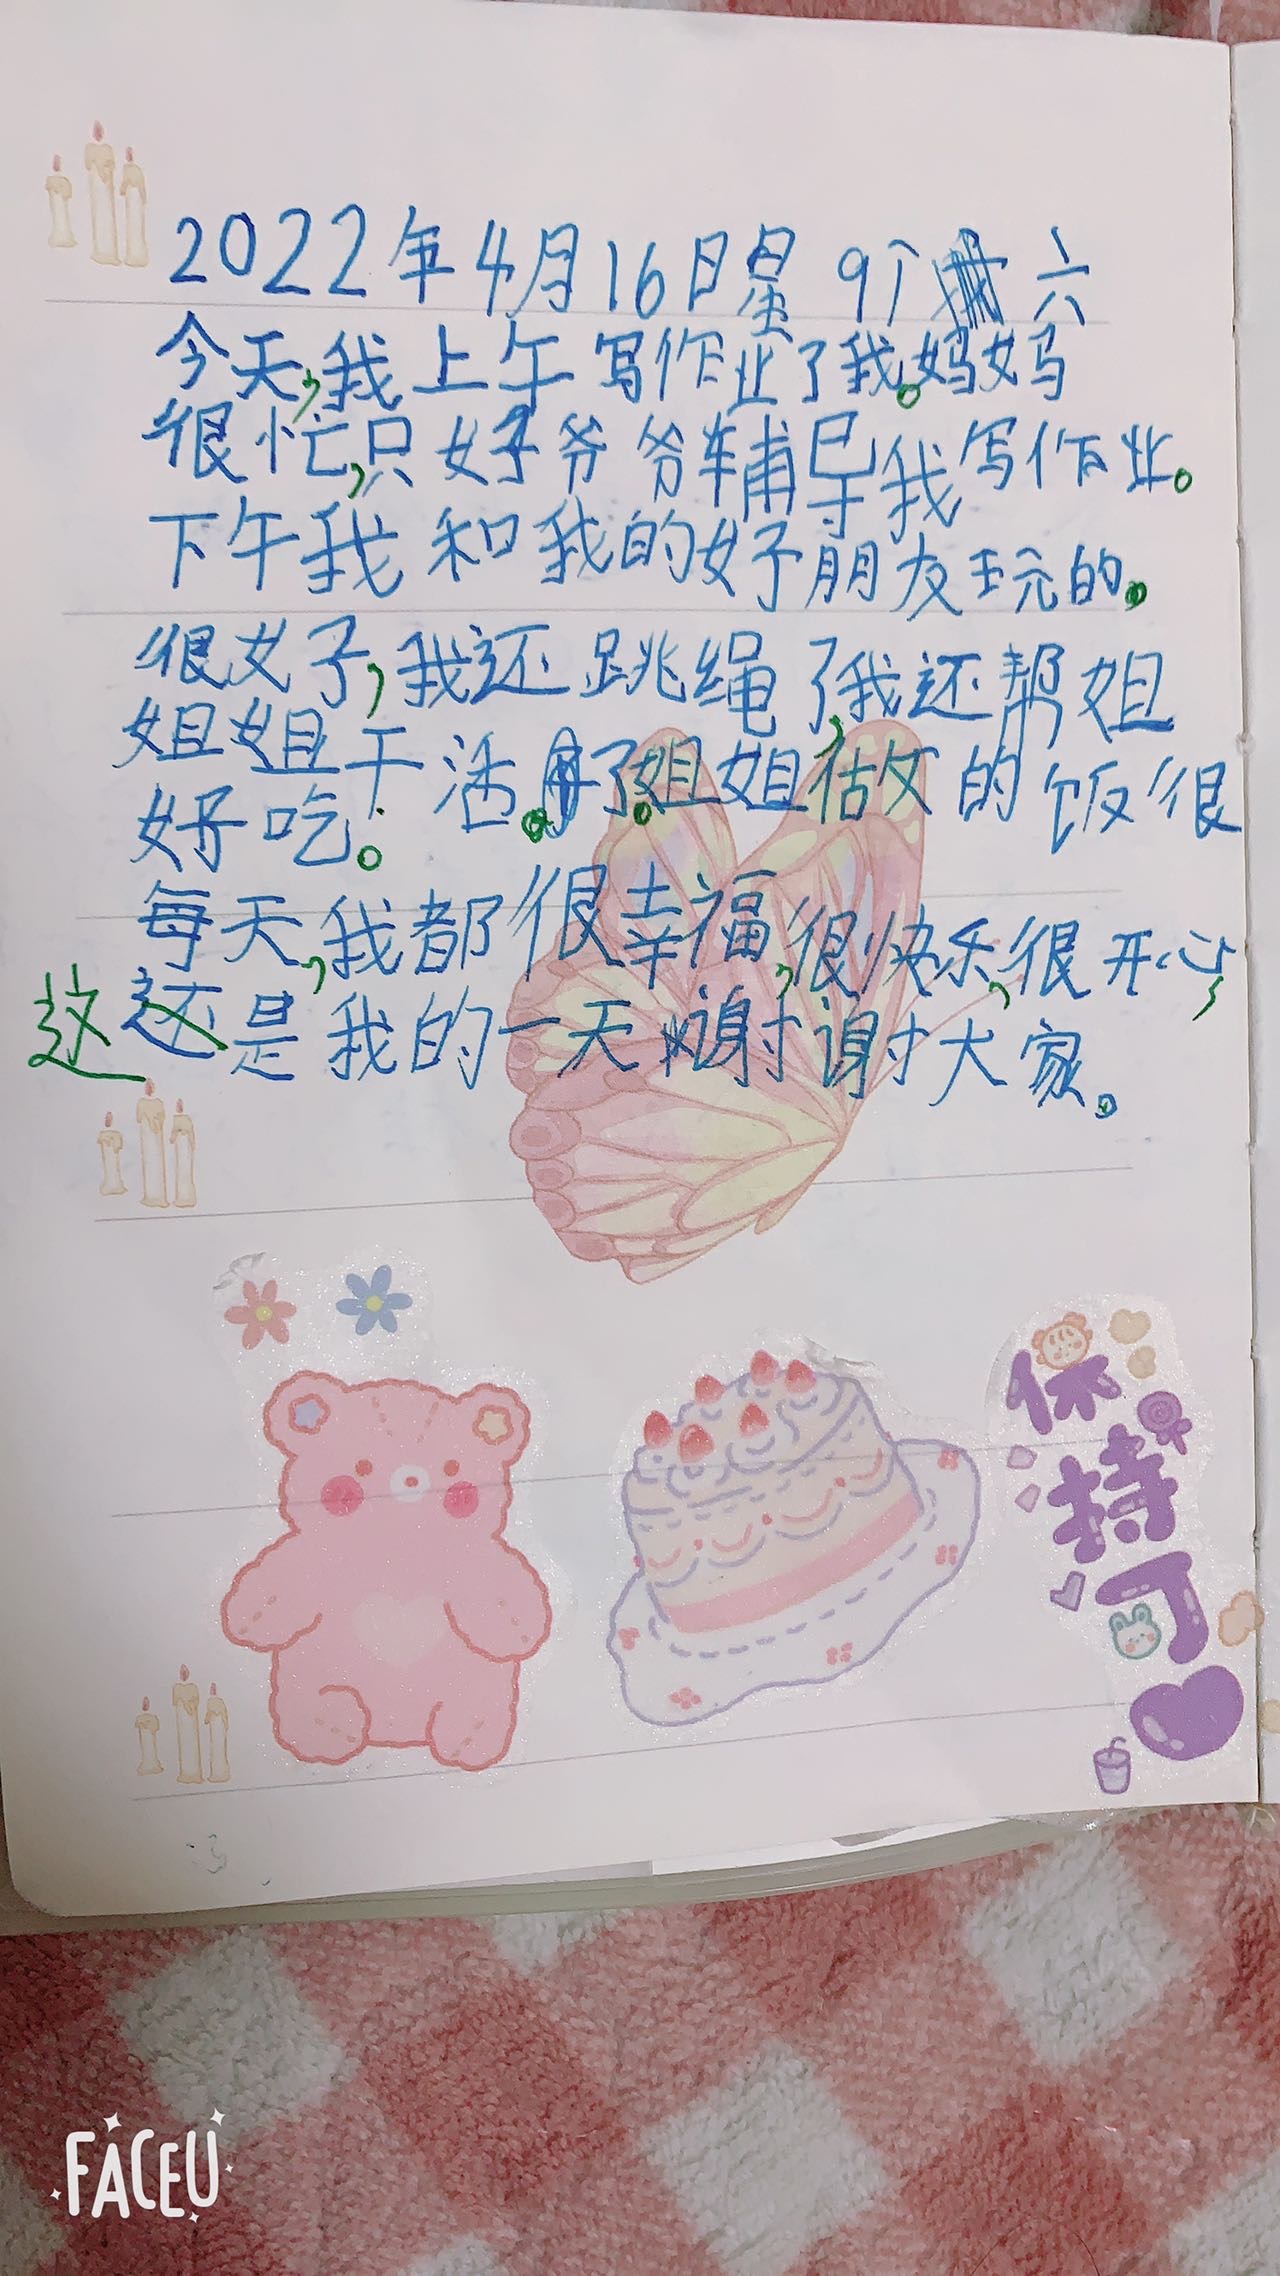 2022年4月16日星 9个 六
今天,我上午写作业了我。妈妈
很忙,只好爷爷辅导我写作业。
下午我和我的好朋友玩的。
很好,我还跳绳了我还帮姐
姐姐干活。了。姐姐做的饭很
好吃。
每天,我都很幸福,很快乐,很开心,
这还是我的一天谢谢大家。
保持可
FACEU